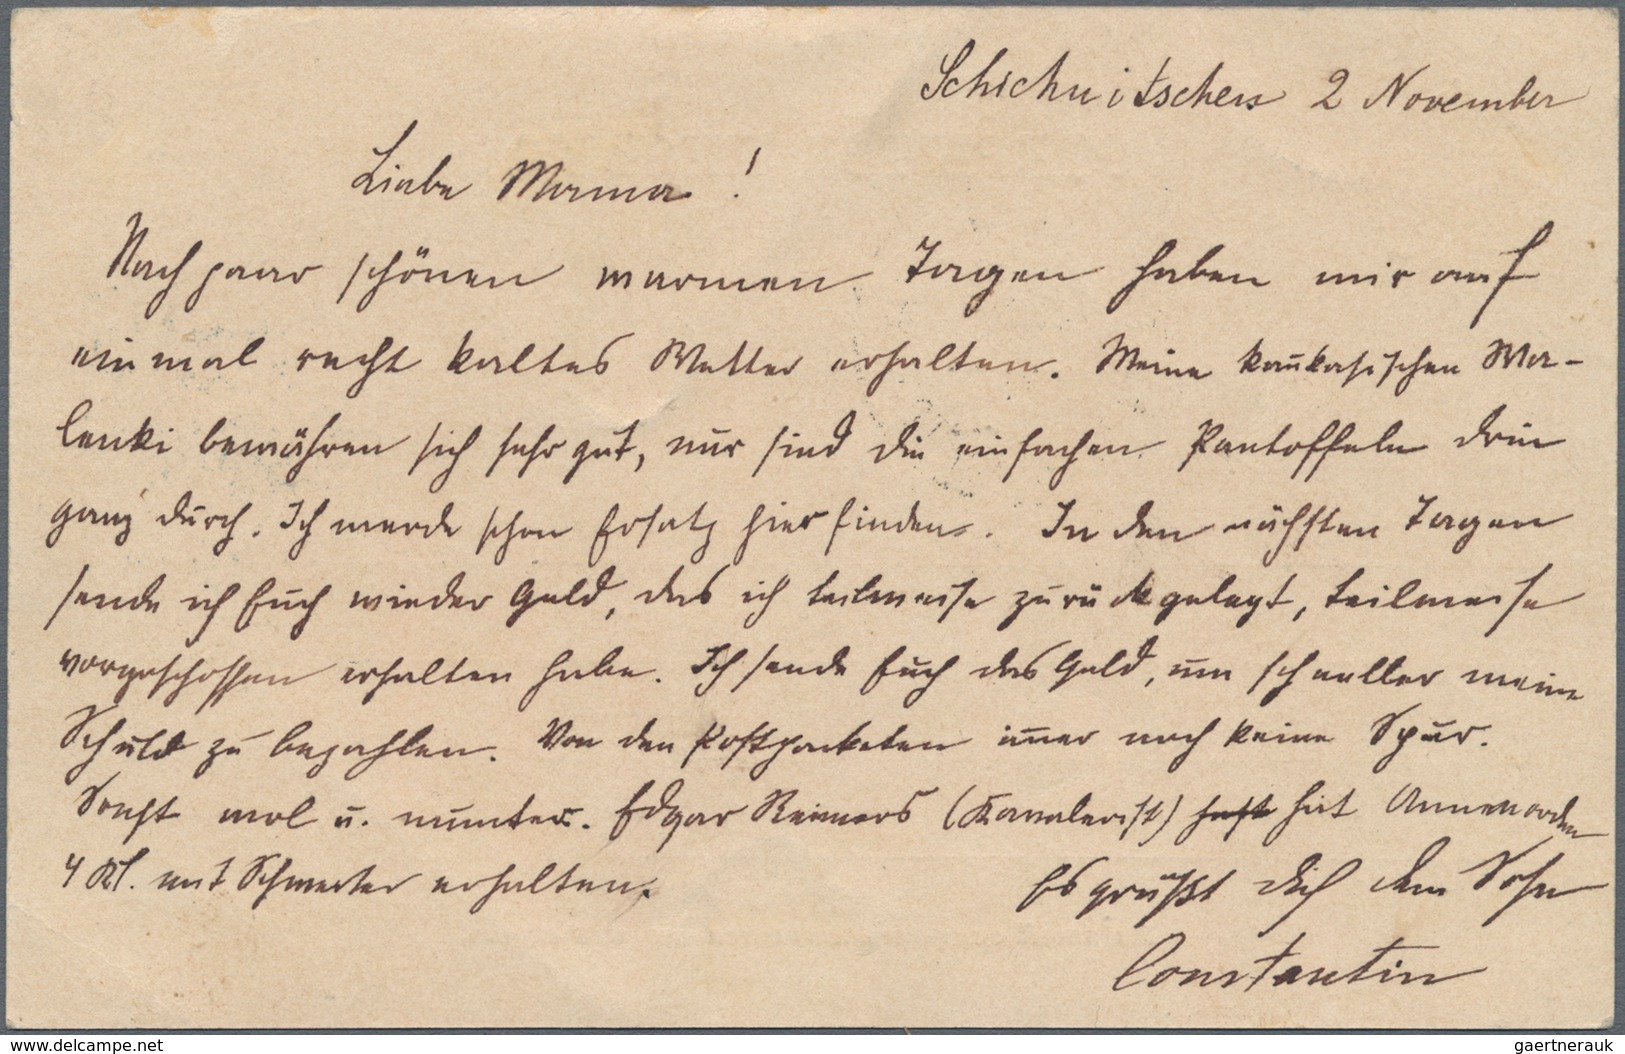 Schichuitschen 2 November
Liebe Mama!
Nach paar schönen warmen Tagen haben wir auf
einmal recht kaltes Wetter erhalten. Meine kaukasischen Wa-
lenki bewähren sich sehr gut, nur sind die einfachen Pantoffeln drin
ganz durch. Ich werde schon Ersatz hier finden. In den nächsten Tagen
sende ich Euch wieder Geld, das ich teilweise zurückgelegt, teilweise
vorgeschossen erhalten habe. Ich sende Euch das Geld, um schneller meine
Schuld zu bezahlen. Von den Postpacketen im̅er noch keine Spur.
Sonst wol u. munter. Edgar Reimers (Kavalerist) hat Annenorden
4 Kl. mit Schwerter erhalten.
Es grüßt Dich Dein Sohn
Constantin
delcampe.net
gaertnerauk